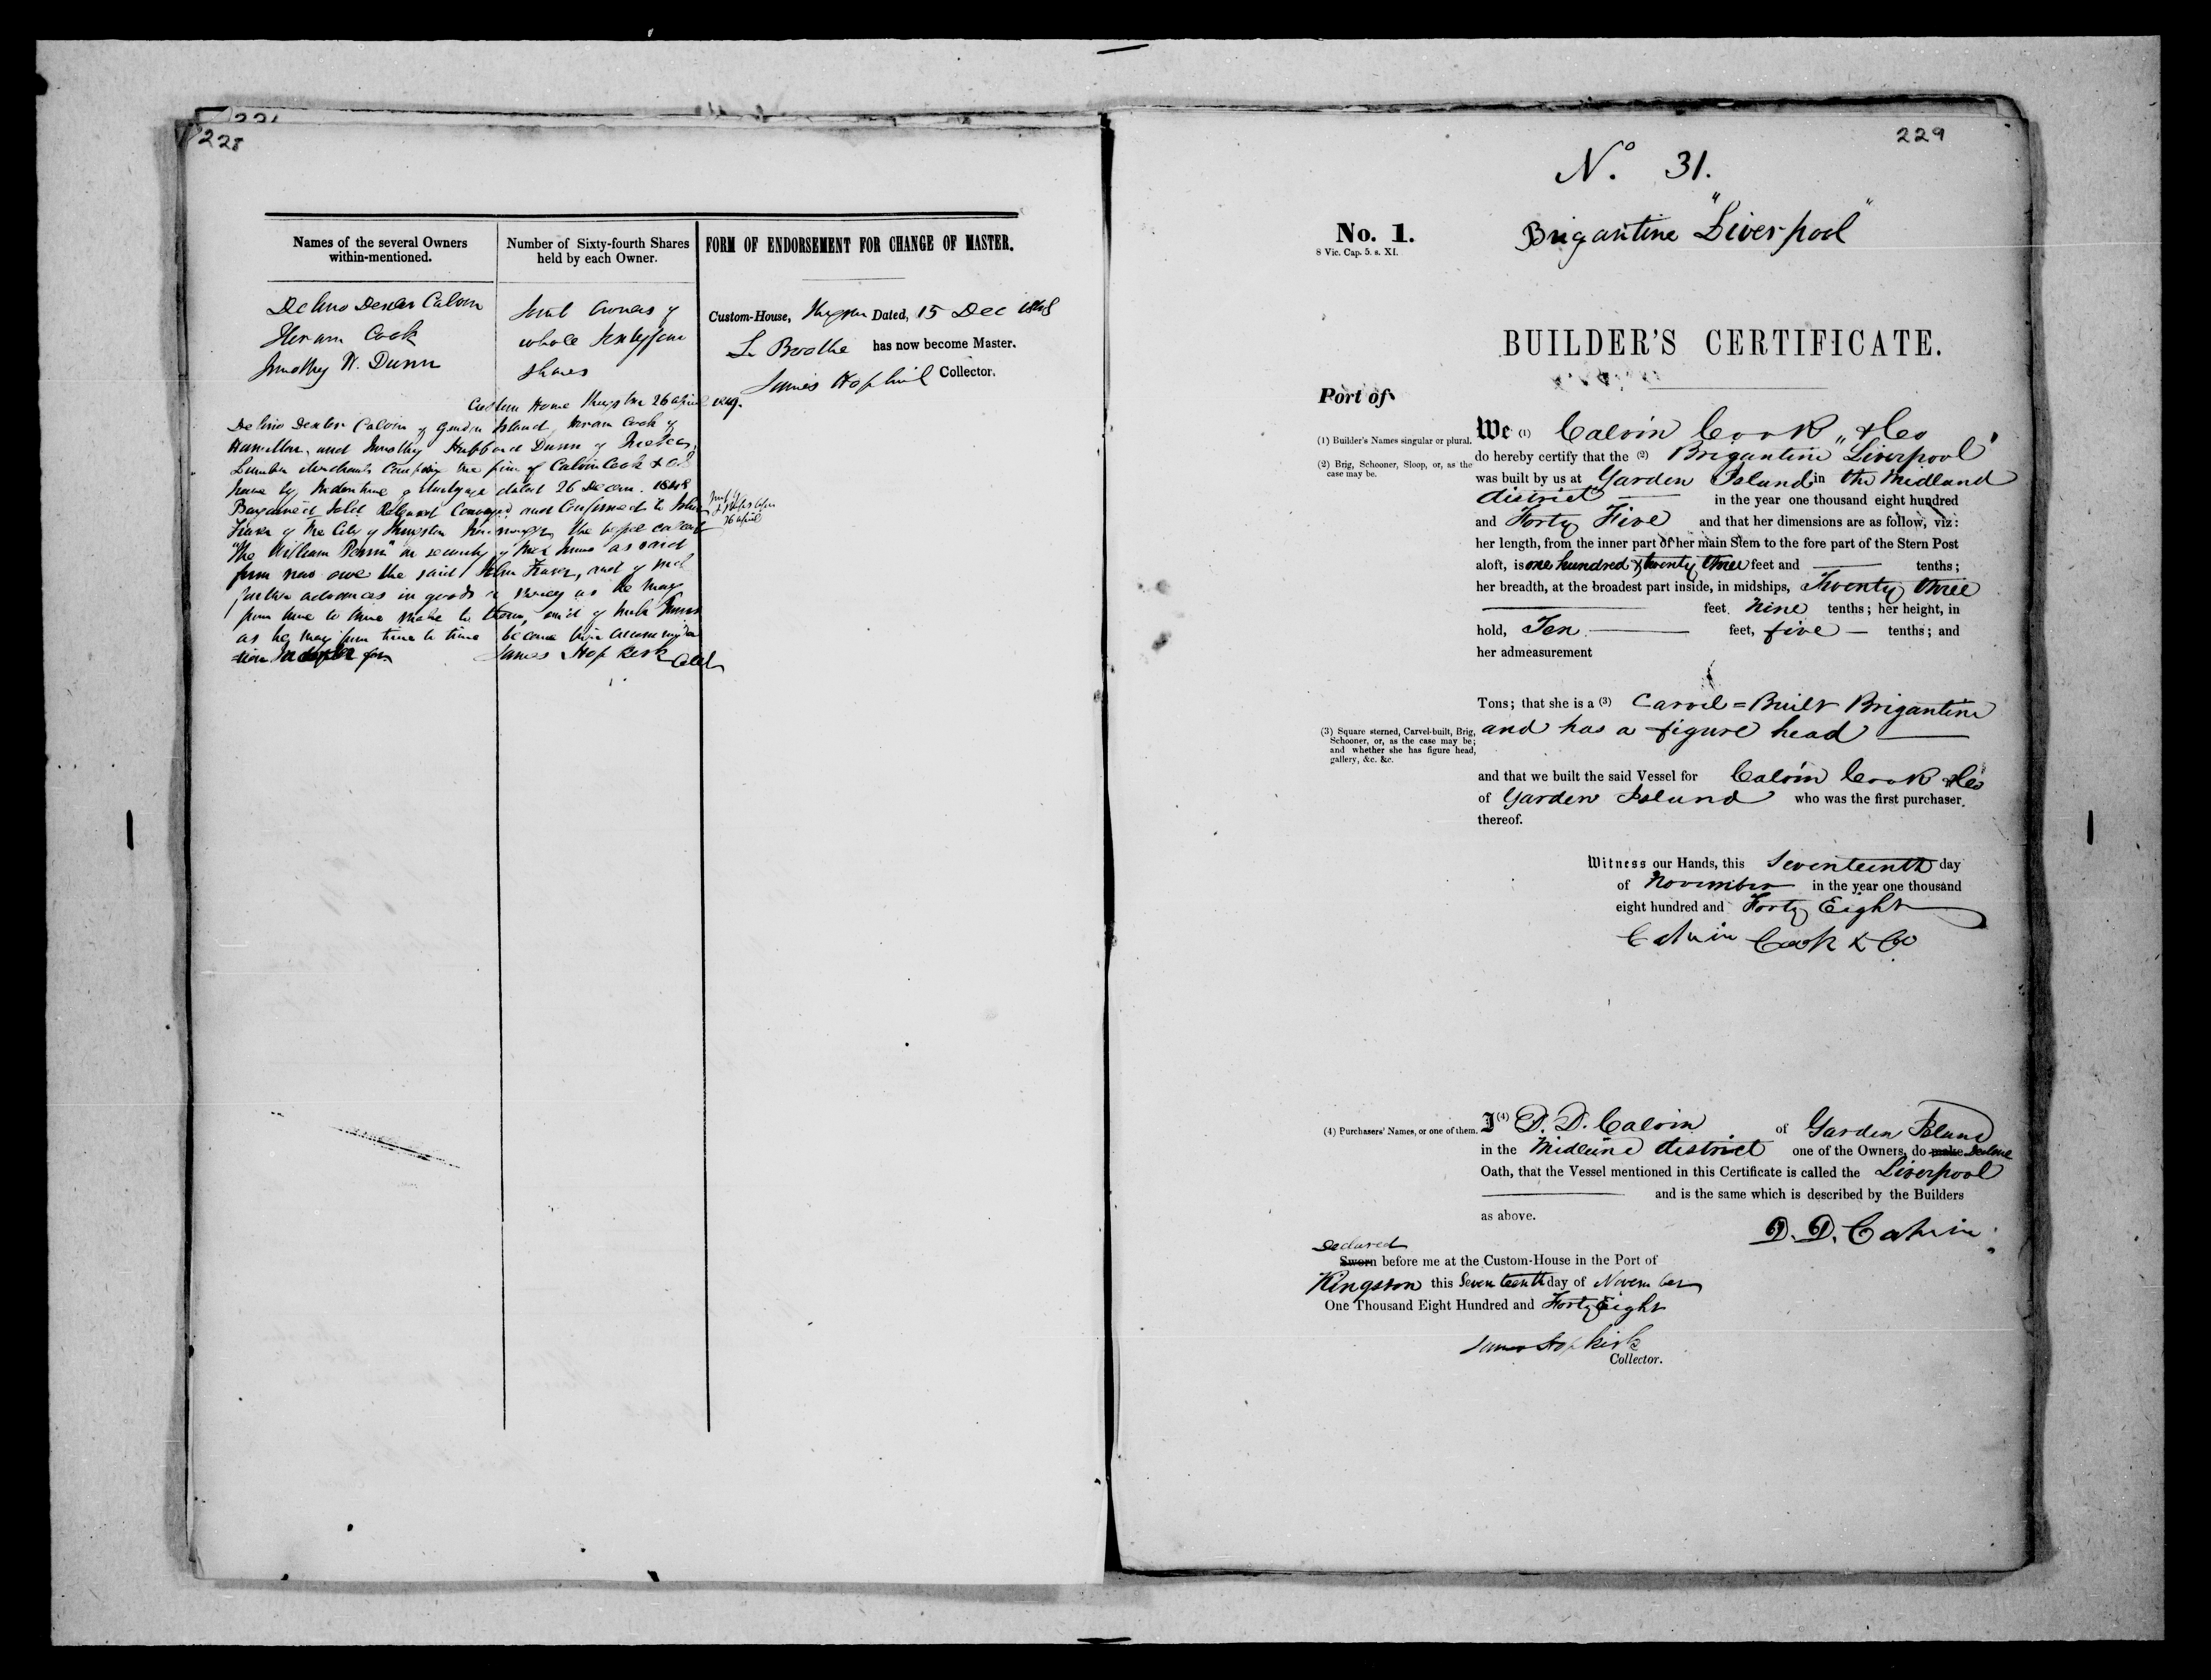 228
Names of the several Owners
within-mentioned.
Number of Sixty-fourth Shares
held by each Owner.
FORM OF ENDORSEMENT FOR CHANGE OF MASTER.
Delino Dexter Calvin
Hiram Cook
Timothy H. Dunn
Joint Owners of
whole Sixtyfour
Shares
Custom-House, Kingston Dated, 15 Dec 1848
has now become Master.
James Hopkirk Collector.
Custom House Kingston 26 april 1849.
Delino Dexter Calvin of Garden Island, Hiram Cook of
Hamilton, and Timothy Hubbard Dunn of Quebec,
Lumber Merchants Composing the firm of Calvin Cook & Co
have by Indenture of Mortgage dated 26 Decem. 1848
Bargained Sold Released Conveyed and Confirmed to John
Fraser of the City of Kingston the vessel called
"The William Penn" in security of such sums as said
firm now owe the said John Fraser, and of such
further advances in goods or money as he may
from time to time make to them, and of such sums
as he may from time to time become
26 april
James Hopkirk Coll
229
No. 31.
Brigantine "Liverpool"
No. 1.
8 Vic. Cap. 5. s. XI.
BUILDER'S CERTIFICATE.
Port of
(1) Builder's Names singular or plural.
(2) Brig, Schooner, Sloop, or, as the
case may be.
We (1) Calvin Cook & Co
do hereby certify that the (2) Brigantine "Liverpool"
was built by us at Garden Island in the Midland
district in the year one thousand eight hundred
and Forty Five and that her dimensions are as follow, viz:
her length, from the inner part of her main Stem to the fore part of the Stern Post
aloft, is one hundred & twenty three feet and tenths;
her breadth, at the broadest part inside, in midships, Twenty three
feet nine tenths; her height, in
hold, Ten feet, five tenths; and
her admeasurement
Tons; that she is a (3) Carvel=Built Brigantine
and has a figure head
(3) Square sterned, Carvel-built, Brig,
Schooner, or, as the case may be;
and whether she has figure head,
gallery, &c. &c.
and that we built the said Vessel for Calvin Cook & Co
of Garden Island who was the first purchaser
thereof.
Witness our Hands, this Seventeenth day
of November in the year one thousand
eight hundred and Forty Eight
Calvin Cook & Co
(4) Purchasers' Names, or one of them.
I (4) D. D. Calvin of Garden Island
in the Midland district one of the Owners, do make Declare
Oath, that the Vessel mentioned in this Certificate is called the Liverpool
and is the same which is described by the Builders
as above.
D. D. Calvin
Declared
Sworn before me at the Custom-House in the Port of
Kingston this Seventeenth day of November
One Thousand Eight Hundred and Forty Eight
James Hopkirk
Collector.